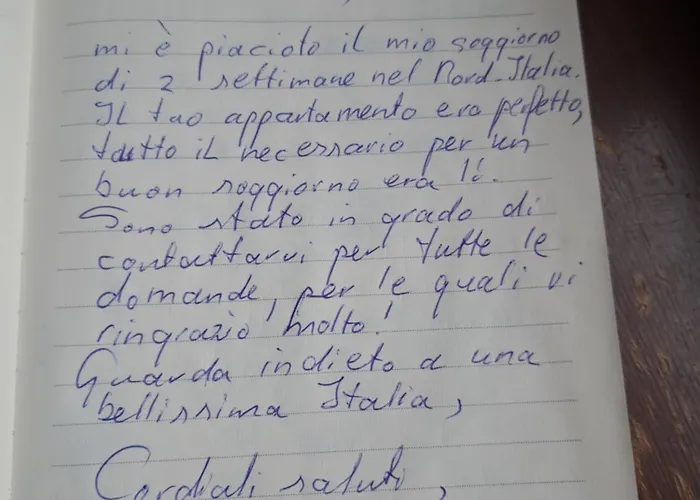 mi è piacioto il mio soggiorno
di 2 settimane nel Nord-Italia.
Il tuo appartamento era perfetto,
tutto il necessario per un
buon soggiorno era lì.
Sono stato in grado di
contattarvi per tutte le
domande, per le quali vi
ringrazio molto!
Guarda indieto a una
bellissima Italia,
Cordiali saluti,